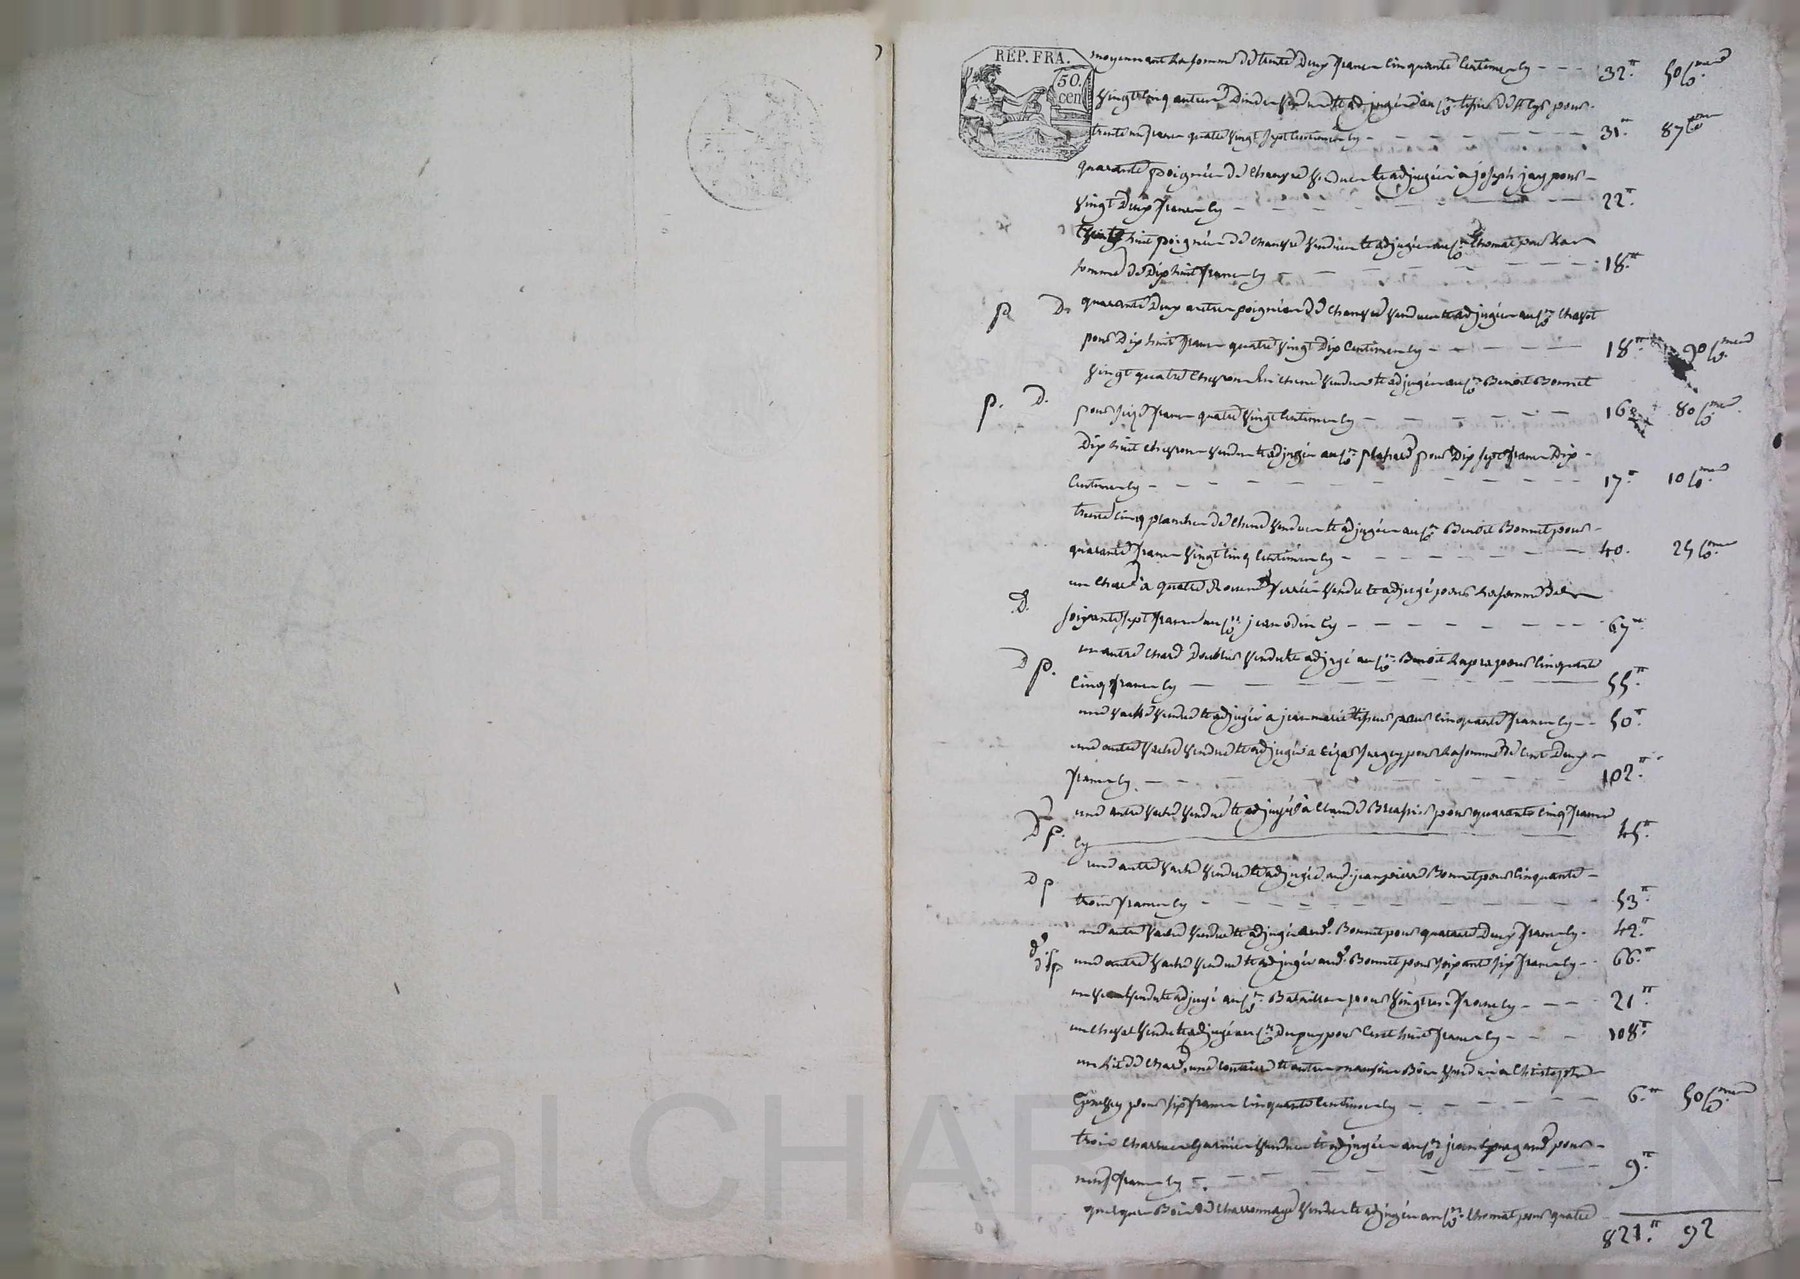 REP. FRA.
50.
cen
moyennant la somme de trente Deux francs Cinquante Centimes cy - - - 32.tt 50 C.mes
Vingt Cinq autres Dindes vendues et adjugées au C.en pour
trente un francs quatre vingt sept Centimes cy - - - 31.tt 87 C.mes
quarante poignées de chanvre vendues et adjugées à joseph jay pour
vingt Deux francs cy - - - 22.tt
huit poignées de chanvre vendues et adjugées au C.en thomas pour la
somme de Dix huit francs cy - - - 18.tt
p D. quarante Deux autres poignées de chanvre vendues et adjugées au C.en Chavot
pour Dix huit francs quatre vingt Dix Centimes cy - - - 18.tt 90 C.mes
vingt quatre chevrons chene vendus et adjugés au C.en Benoit Bonnet
p. D. pour seize francs quatre vingt Centimes cy - - - 16 80 C.mes
Dix huit chevrons vendus et adjugés au C.en plassard pour Dix sept francs Dix
Centimes cy - - - 17.tt 10 C.mes
trente Cinq planches de chene vendues et adjugées au C.en Benoit Bonnet pour
quarante francs vingt Cinq Centimes cy - - - 40. 25 C.mes
un Chard à quatre Roues ferrées vendu et adjugé pour la somme de
D. soixante sept francs au C.en jean odin cy - - - 67.tt
un autre Chard vendu et adjugé au C.en Benoit pour Cinquante
D p. Cinq francs cy - - - 55.tt
une vache vendue et adjugée à jean marie pour Cinquante francs cy - - 50.tt
une autre vache vendue et adjugée à pour la somme de Cent Deux
francs cy - - - 102.tt
une autre vache vendue et adjugée à Claude pour quarante Cinq francs
D p. cy 45.tt
une autre vache vendue et adjugée aud. jean pierre Bonnet pour Cinquante
D p trois francs cy - - - 53.tt
une autre vache vendue et adjugée aud. Bonnet pour quarante Deux francs cy. 42.tt
une autre vache vendue et adjugée aud. Bonnet pour soixante six francs cy - - 66.tt
un vendu et adjugé au C.en Bataillon pour vingt un francs cy - - - 21.tt
un cheval vendu et adjugé au C.en Dupuy pour Cent huit francs cy - - - 108.tt
un de Chard, une et autres Bois vendus à Christophe
pour six francs Cinquante Centimes cy - - - 6.tt 50 C.mes
trois Charrues garnies vendues et adjugées au C.en jean pour
neuf francs cy - - - 9.tt
quelques Bois de charronnage vendus et adjugés au C.en thomas pour quatre
821.tt 92
Pascal CHARTRON